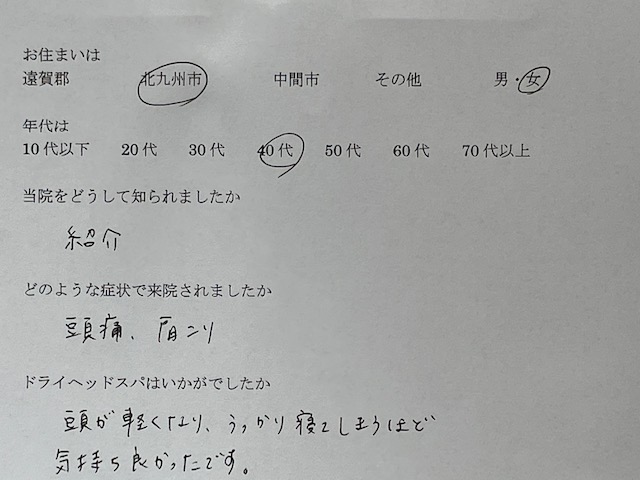 お住まいは
遠賀郡 北九州市 中間市 その他 男・女
年代は
10代以下 20代 30代 40代 50代 60代 70代以上
当院をどうして知られましたか
紹介
どのような症状で来院されましたか
頭痛、肩こり
ドライヘッドスパはいかがでしたか
頭が軽くなり、うっかり寝てしまうほど
気持ち良かったです。